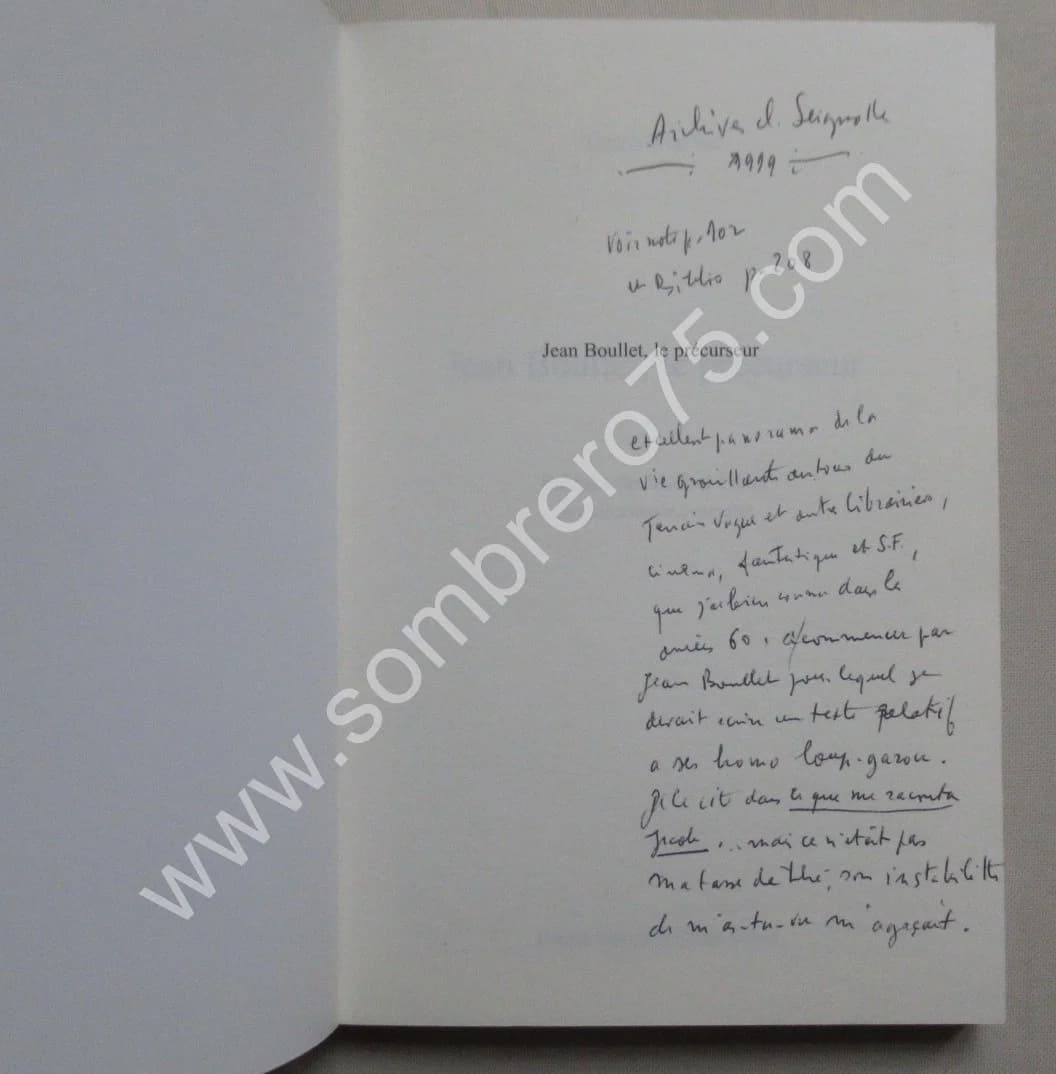 Archives Cl. Seignolle
1999
Voir note p. 102
et Biblio p. 208
Jean Boullet, le précurseur
excellent panorama de la
vie grouillante autour du
Terrain Vague et autre librairies,
cinéma, fantastique et S.F.,
que j'ai bien connu dans les
années 60, à commencer par
Jean Boullet pour lequel je
devait écrire un texte relatif
a ses homo loup-garou.
Je le cit dans ce que me raconta
Jacob... mais ce n'était pas
ma tasse de thé, son instabilité
de m'as-tu-vu m'agaçait.
www.sombrero75.com